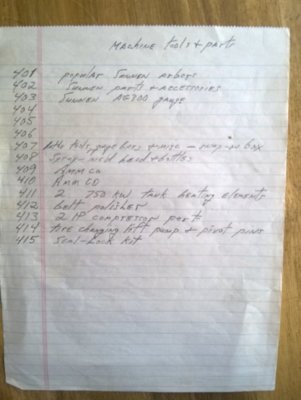 MACHINE tools + parts
401 popular SUNNEN arbors
402 SUNNEN parts + accessories
403 SUNNEN AG300 gauge
404
405
406
407 tools, gage bars + misc - snap-on box
408 med band + battles
409 ca
410 Rmm CO
411 2 750 KW tank heating elements
412 belt polisher
413 2 HP compressor parts
414 tire changing lift pump + pivot pins
415 Seal-Lock kit